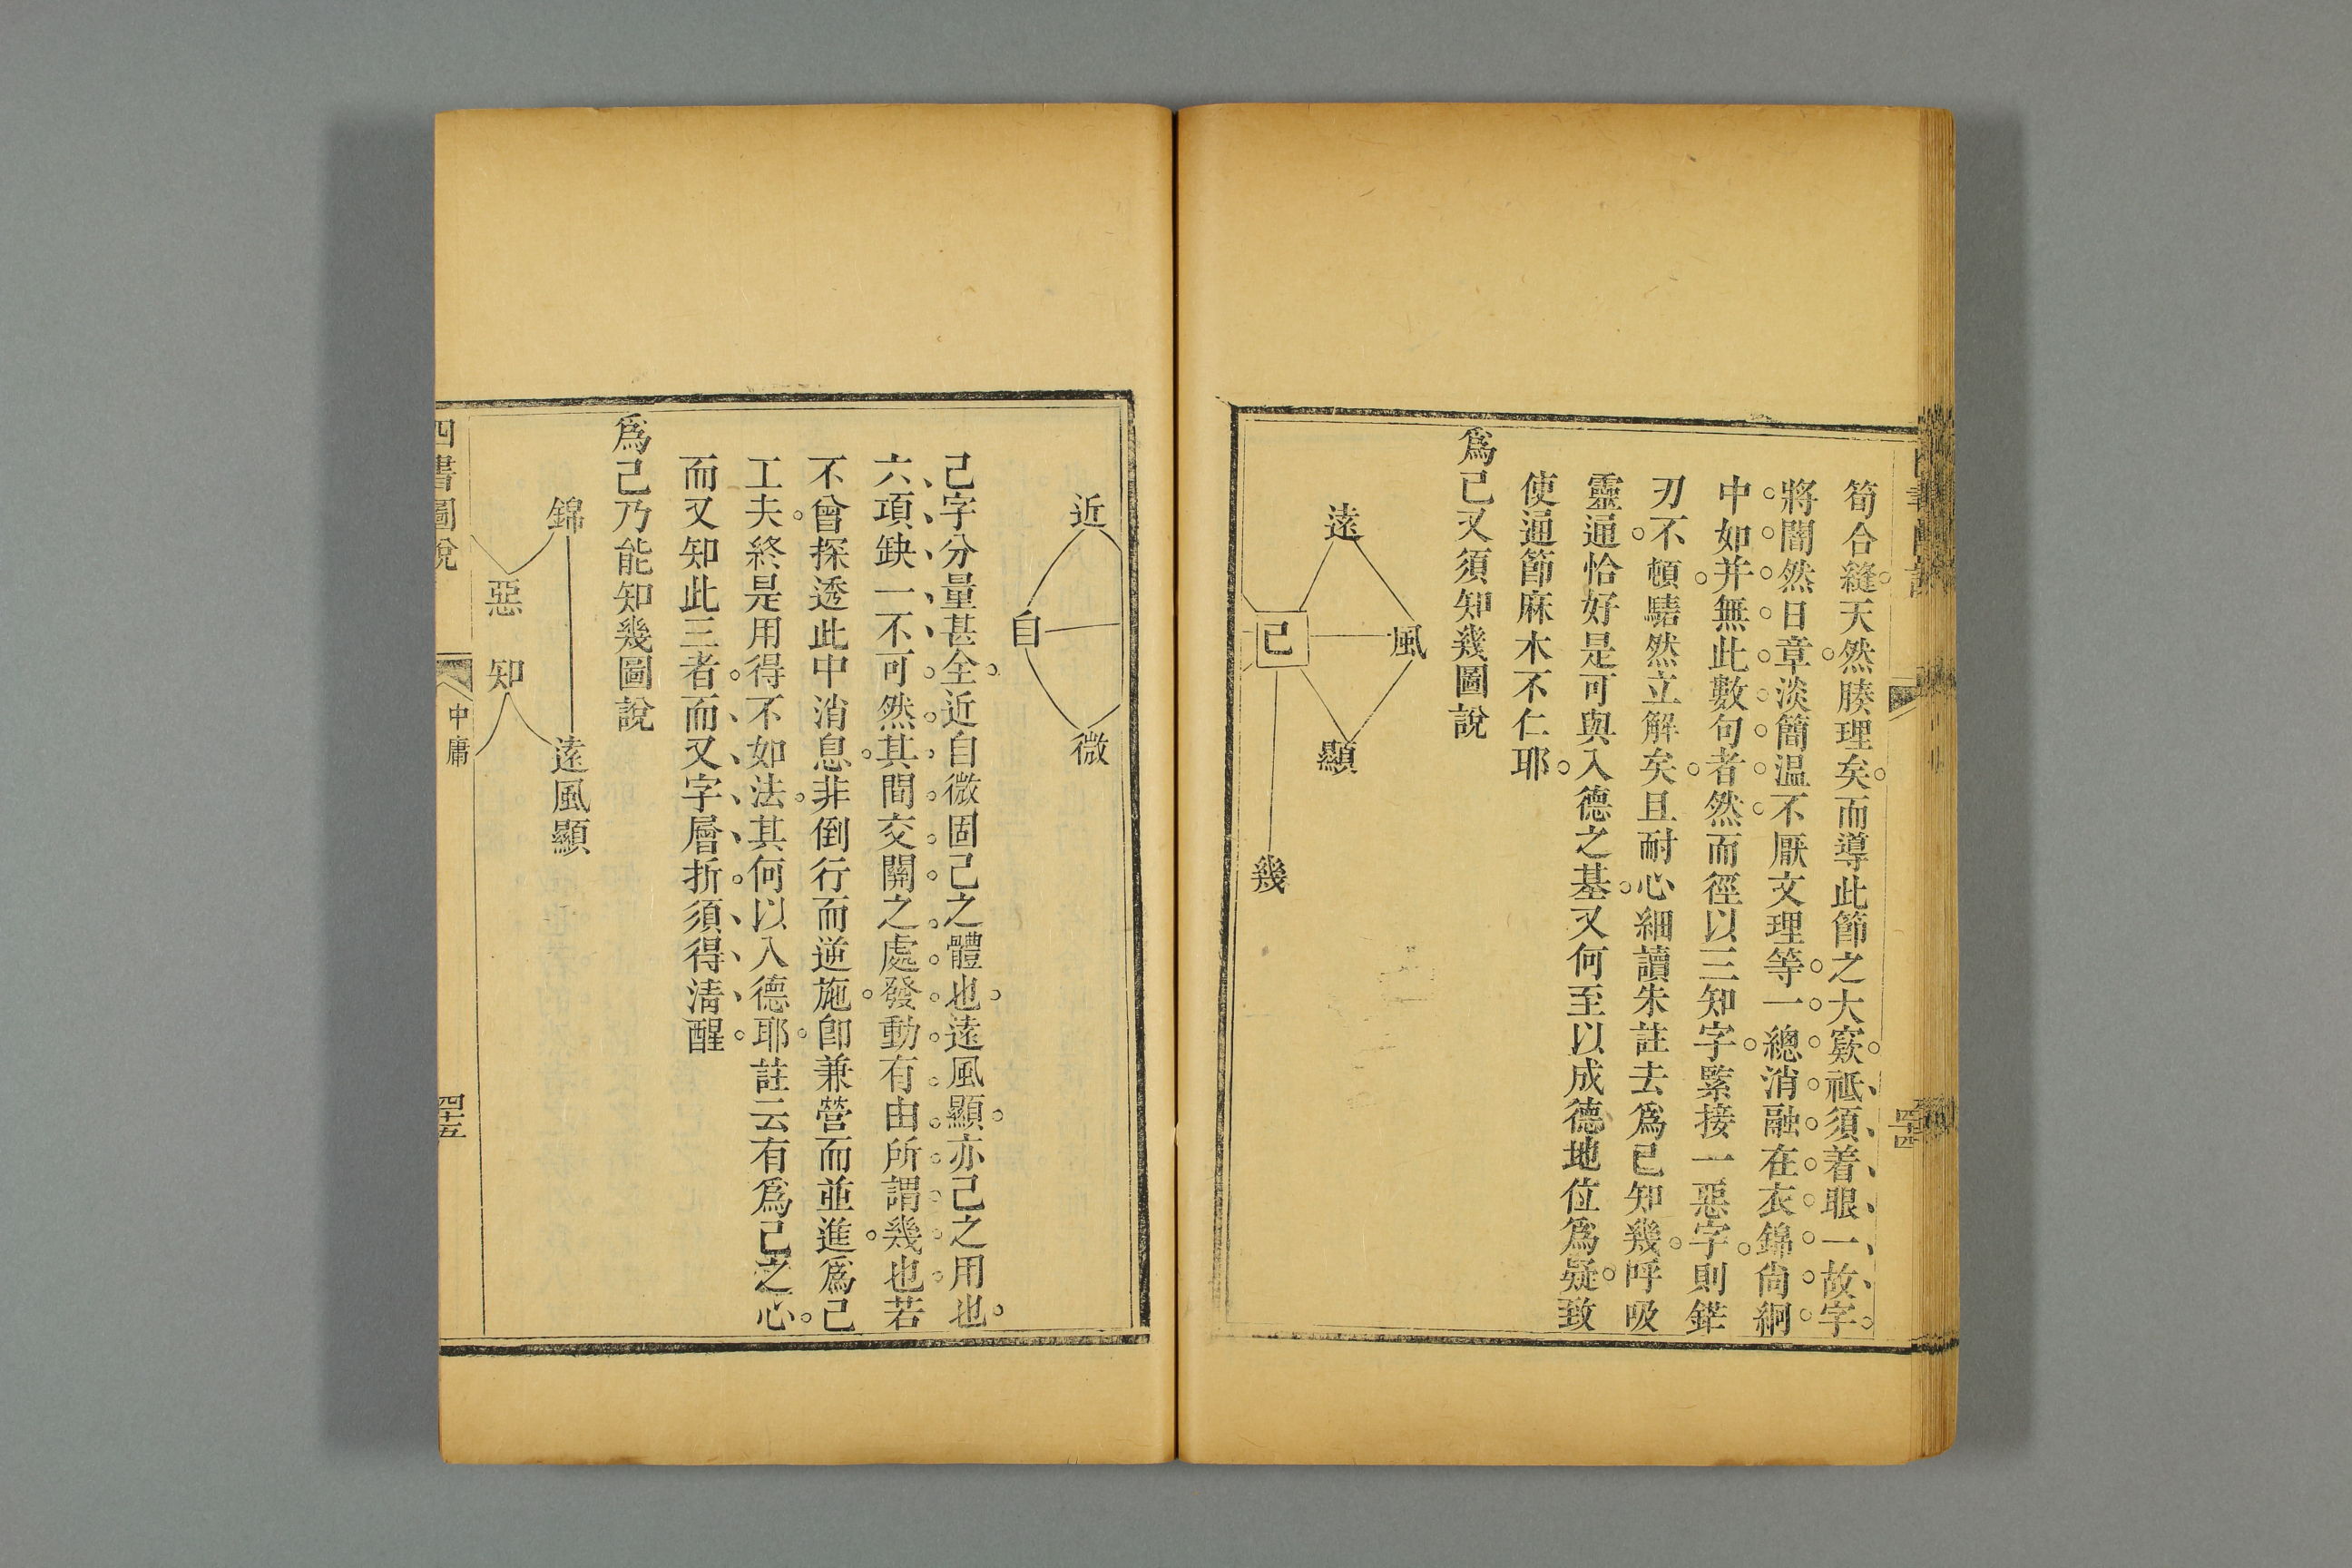 筍合縫天然腠理矣而導此節之大窾祗須着眼一故字
將闇然日章淡簡温不厭文理等一總消融在衣錦尙絅
中如并無此數句者然而徑以三知字緊接一惡字則鋩
刃不頓騞然立解矣且耐心細讀朱註去爲己知幾呼吸
靈通恰好是可與入德之基又何至以成德地位爲疑致
使通節麻木不仁耶
爲己又須知幾圖說
遠
風
己
顯
幾
近
自
微
己字分量甚全近自微固己之體也遠風顯亦己之用也
六項缺一不可然其間交關之處發動有由所謂幾也若
不曾探透此中消息非倒行而逆施卽兼營而並進爲己
工夫終是用得不如法其何以入德耶註云有爲己之心
而又知此三者而又字層折須得淸醒
爲己乃能知幾圖說
錦
遠風顯
惡
知
四書圖說
中庸
四十五